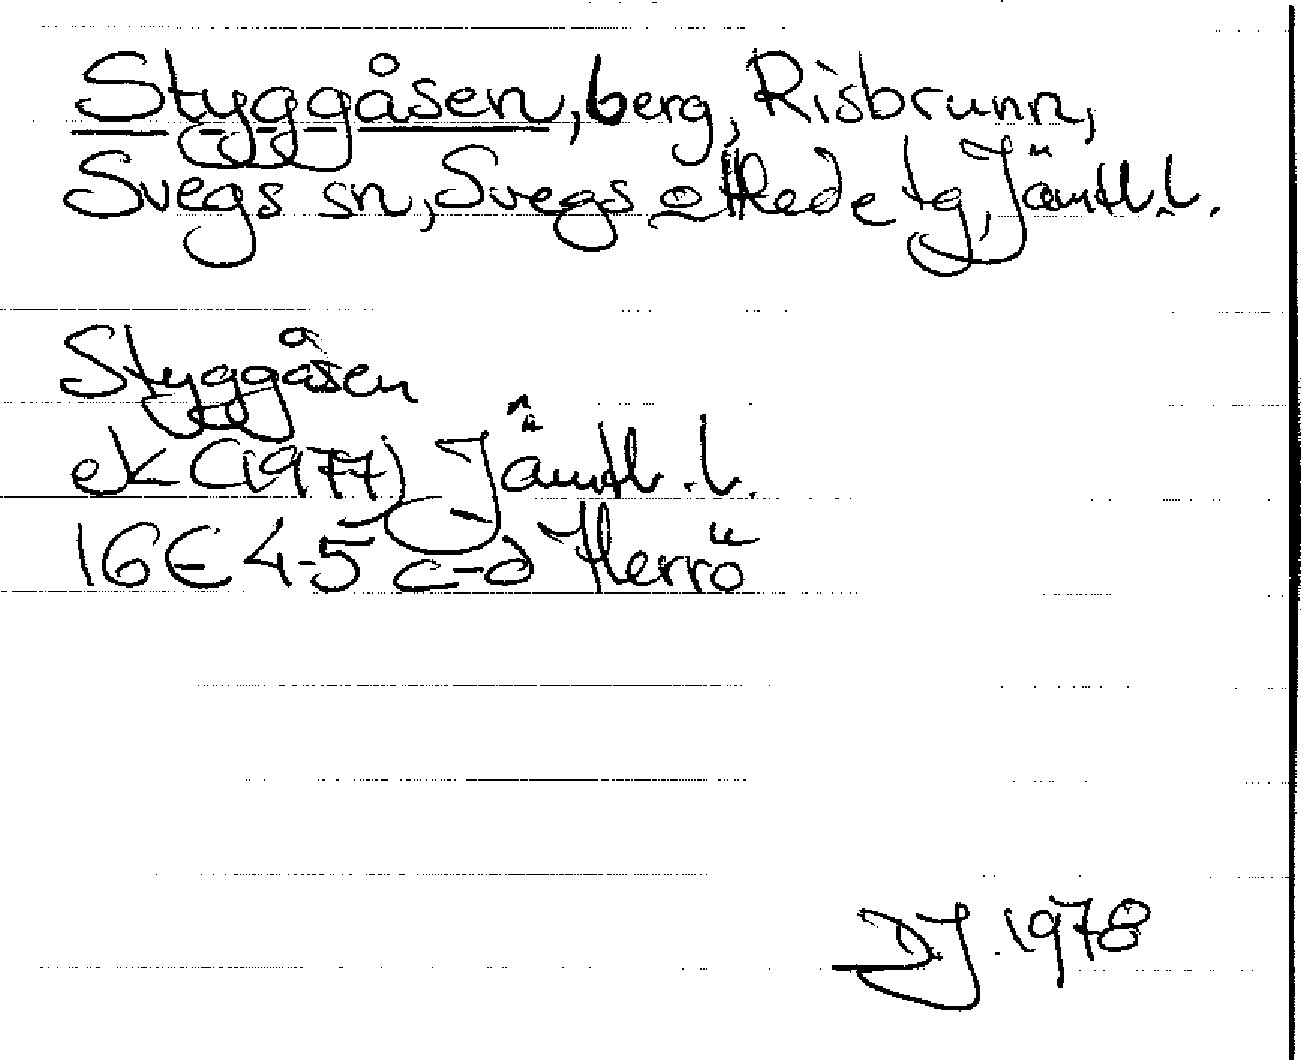 Styggåsen, berg, Risbrunn,
Svegs sn, Svegs o Hede tg, Jämtl.l.
Styggåsen
eK (1977) Jämtl.l.
16E 4-5 c-d Herrö
DJ. 1978